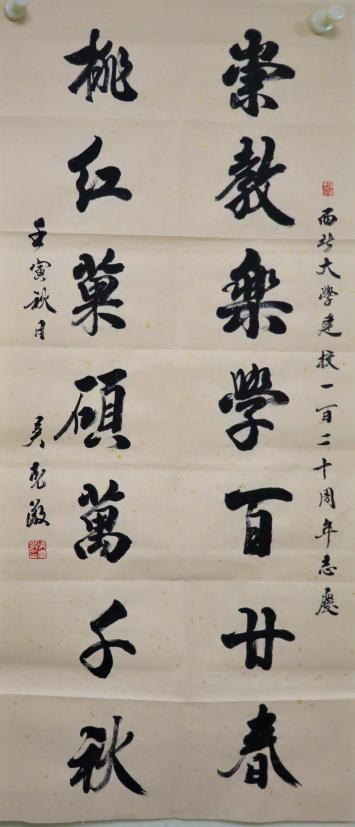 西北大学建校一百二十周年志慶
崇教樂學百廿春
桃红菓碩萬千秋
壬寅秋月